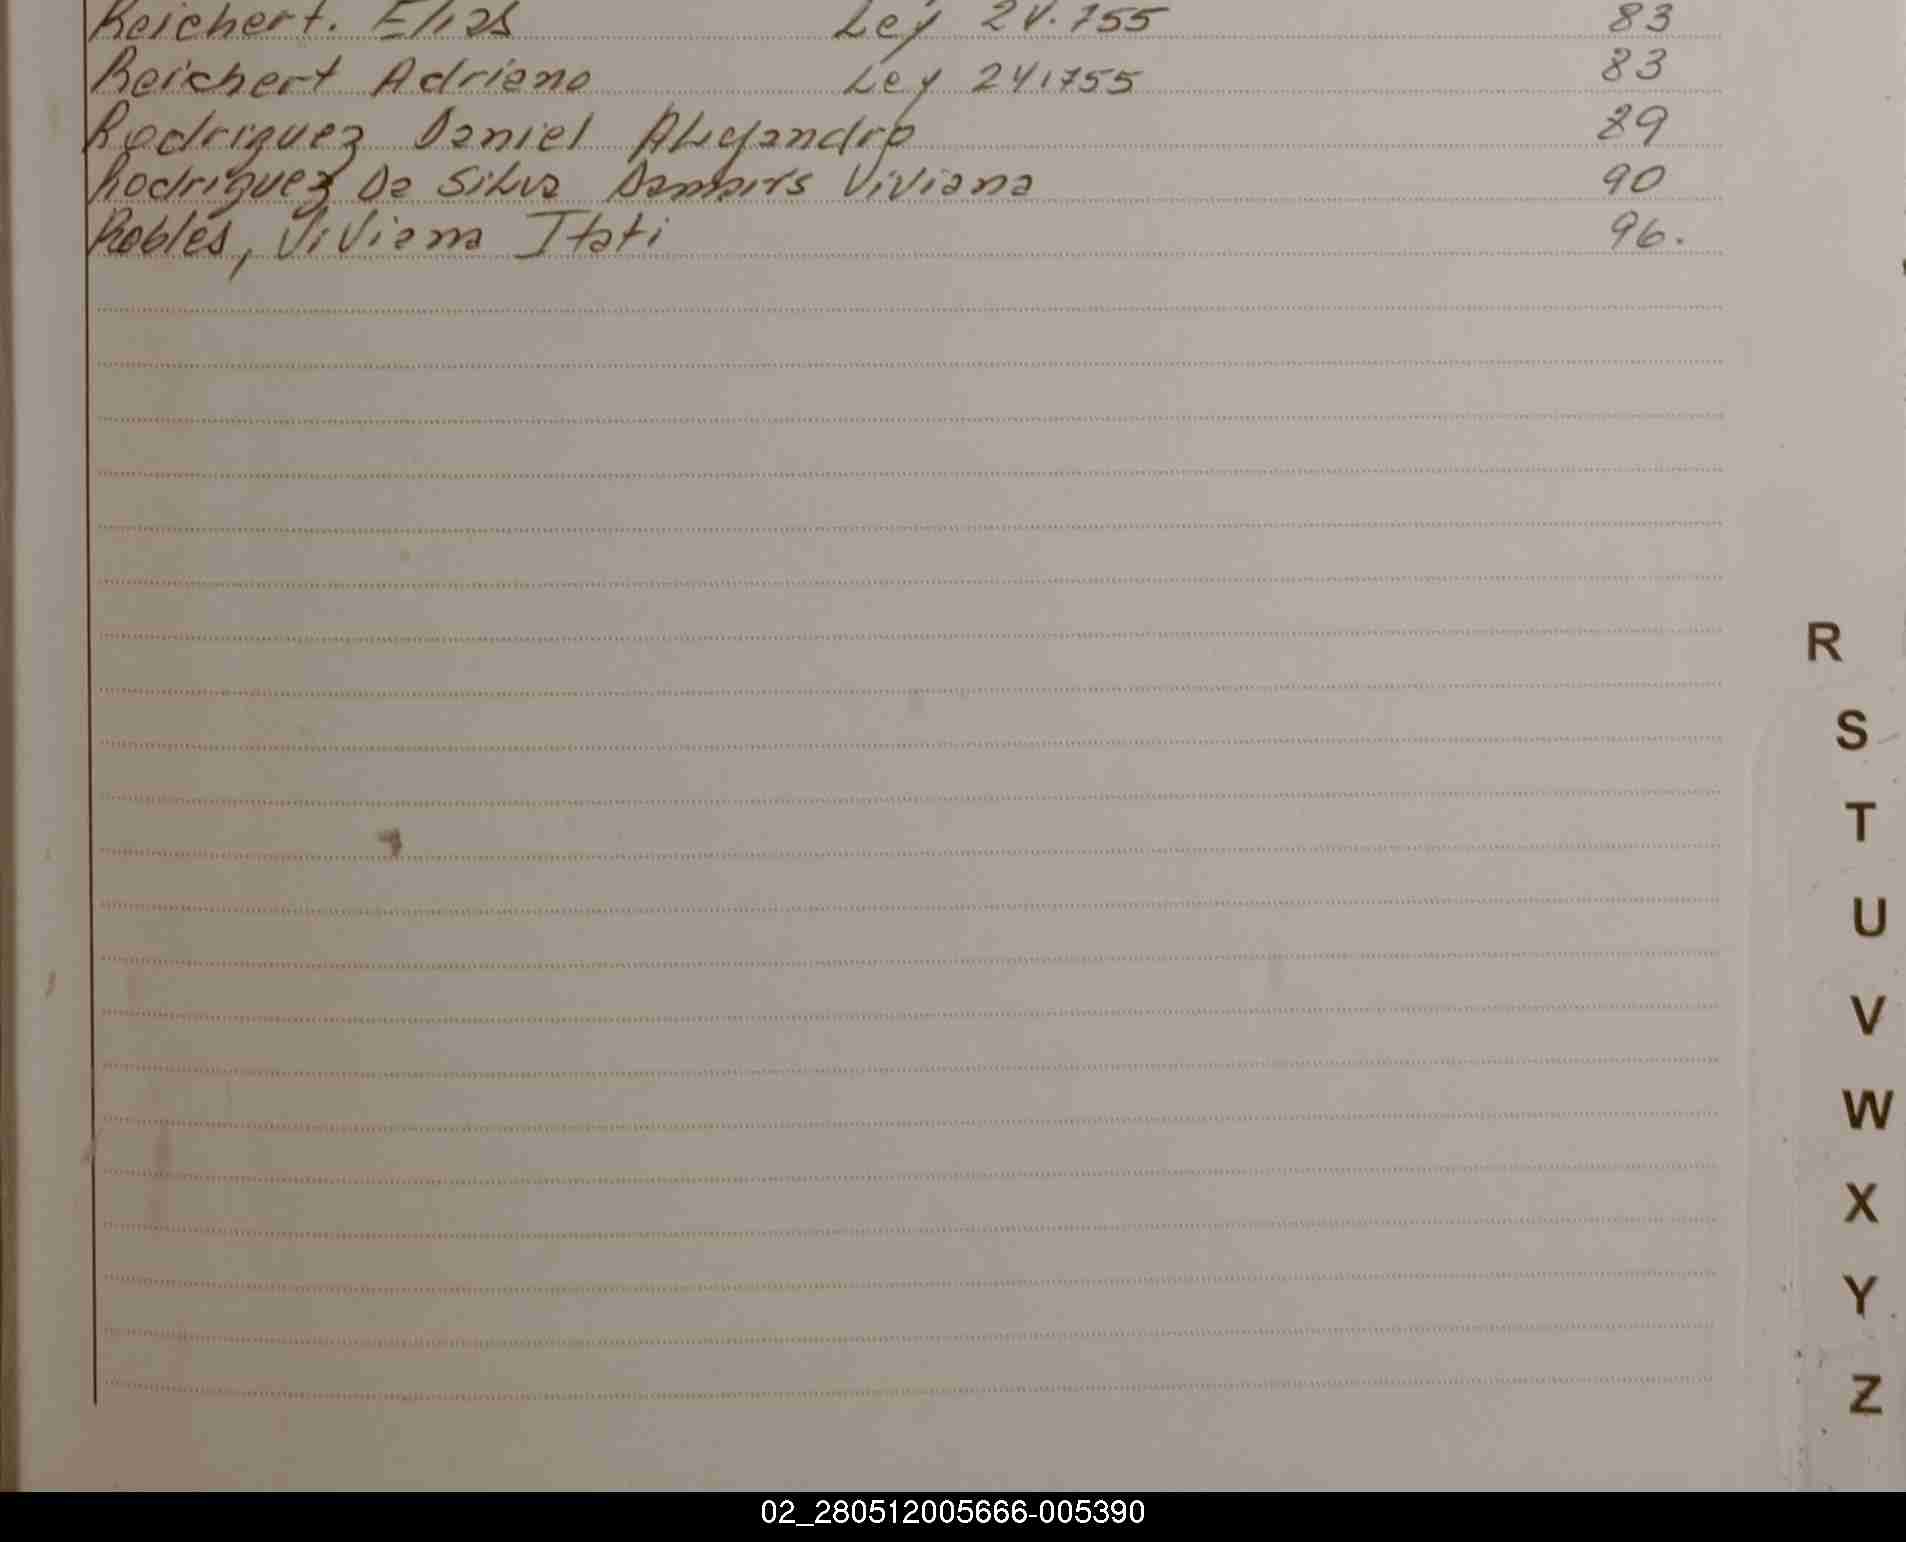 Reichert. Elias Ley 24.755 83
Reichert Adriano Ley 24.755 83
Rodriguez Daniel Alejandro 89
Rodriguez Da Silva Viviana 90
Robles, Viviana Itati 96.
R
S
T
U
V
W
X
Y
Z
02_280512005666-005390